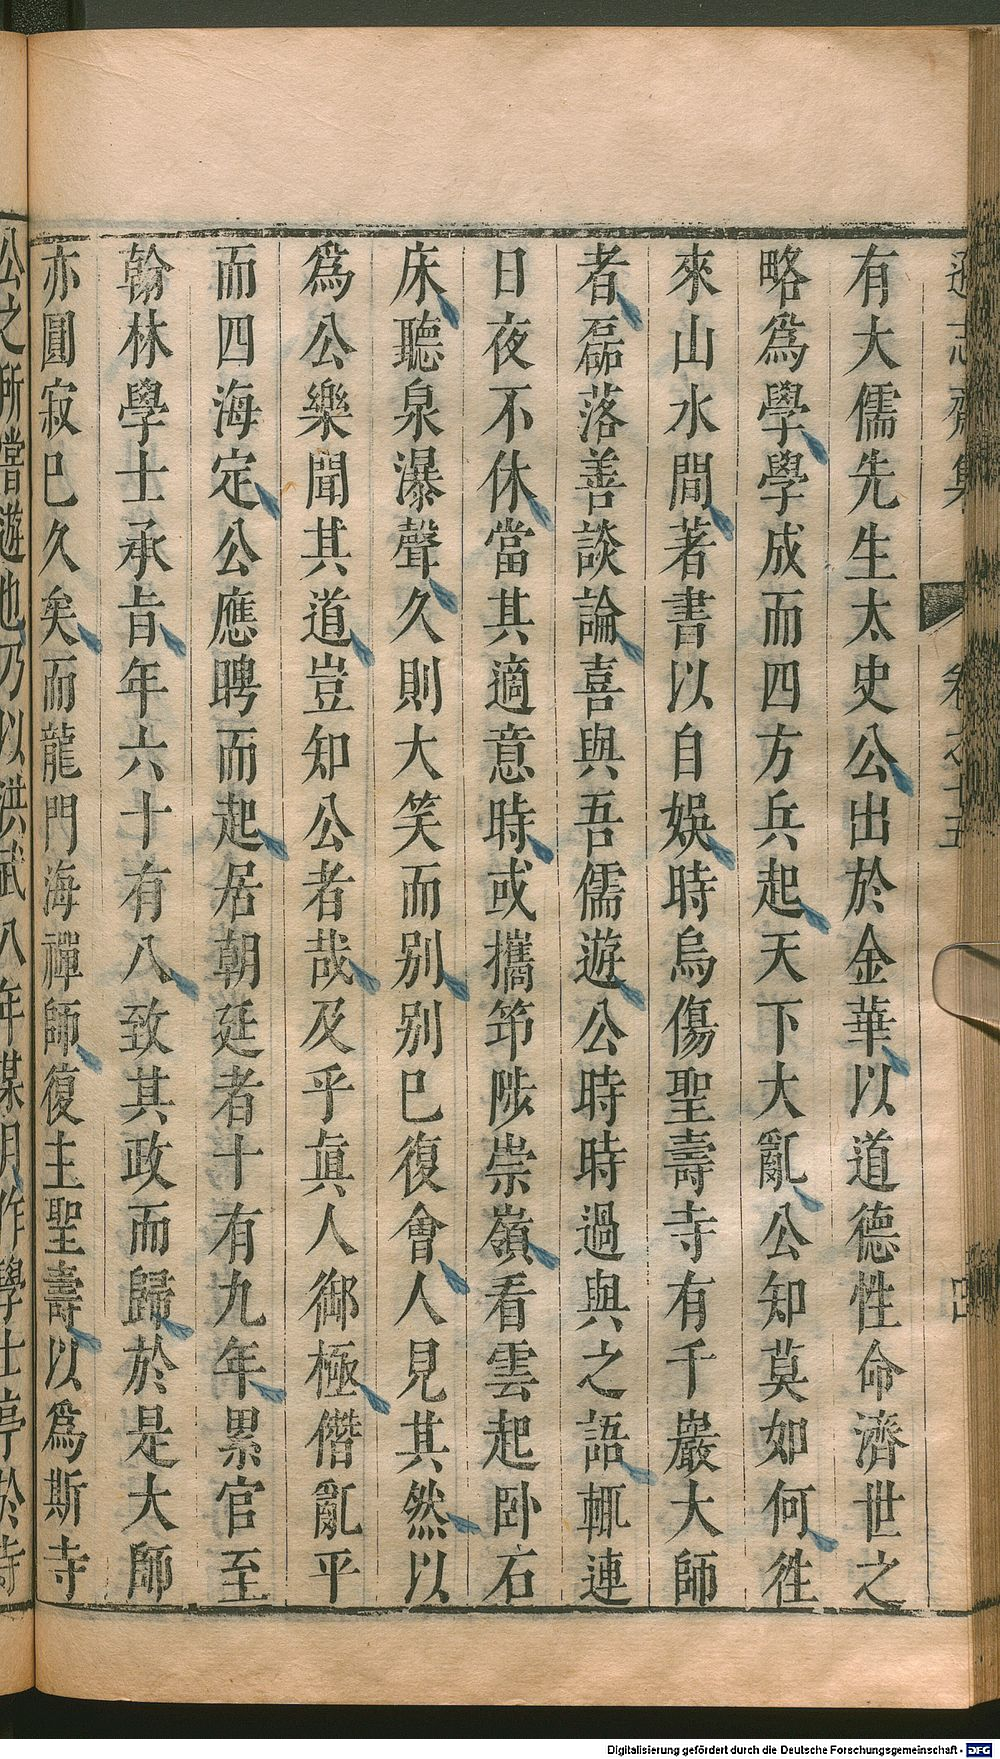 志齋集
卷之十五
四
有大儒先生太史公出於金華以道德性命濟世之
略爲學學成而四方兵起天下大亂公知莫如何徃
來山水間著書以自娛時烏傷聖壽寺有千巖大師
者磊落善談論喜與吾儒遊公時時過與之語輒連
日夜不休當其適意時或攜筇陟崇嶺看雲起卧石
床聽泉瀑聲久則大笑而别别巳復會人見其然以
爲公樂聞其道豈知公者哉及乎眞人御極僭亂平
而四海定公應聘而起居朝廷者十有九年累官至
翰林學士承旨年六十有八致其政而歸於是大師
亦圓寂巳久矣而龍門海禪師復主聖壽以爲斯寺
公之所嘗遊也乃以洪武八年某月作學士亭於寺
Digitalisierung gefördert durch die Deutsche Forschungsgemeinschaft - DFG